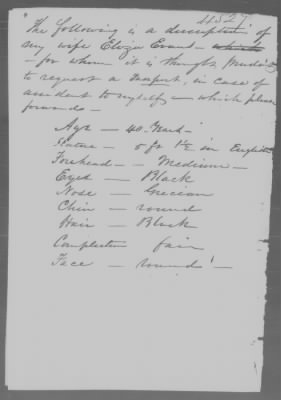 44527
The following is a description of
my wife Eliza Evans -
- for whom it is thought Prudent
to request a Passport, in case of
accident to myself - which please
forward -
Age - 40 Years -
Stature - 5 ft 1½ in English
Forehead - Medium -
Eyes - Black
Nose - Grecian
Chin - round
Hair - Black
Complection fair
Face - round -